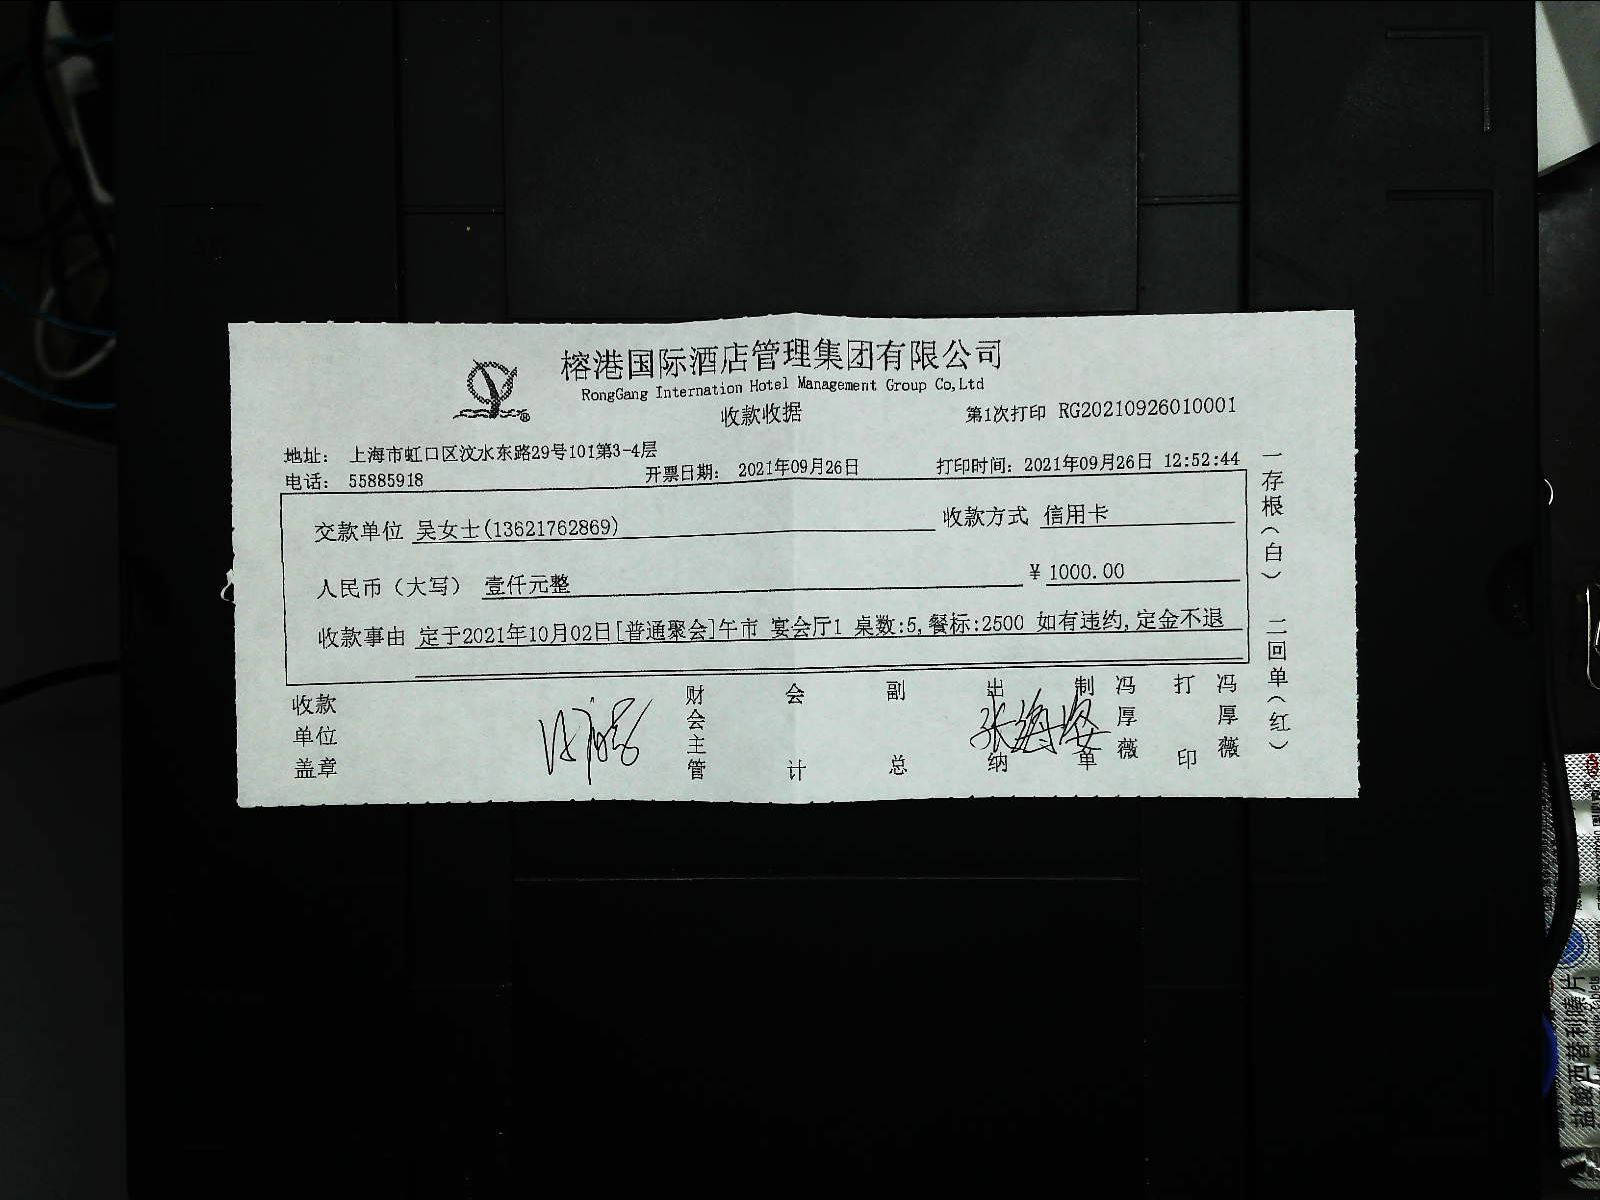 榕港国际酒店管理集团有限公司
RongGang Internation Hotel Management Group Co,Ltd
收款收据
第1次打印 RG20210926010001
地址: 上海市虹口区汶水东路29号101第3-4层
电话: 55885918
开票日期: 2021年09月26日
打印时间: 2021年09月26日 12:52:44
交款单位 吴女士(13621762869)
收款方式 信用卡
人民币（大写） 壹仟元整
¥ 1000.00
收款事由 定于2021年10月02日[普通聚会]午市 宴会厅1 桌数:5,餐标:2500 如有违约,定金不退
收款单位盖章
财会主管
会计
副总
出纳
张海燕
制单
冯厚薇
打印
冯厚薇
一存根(白) 二回单(红)
盐酸西替利嗪片